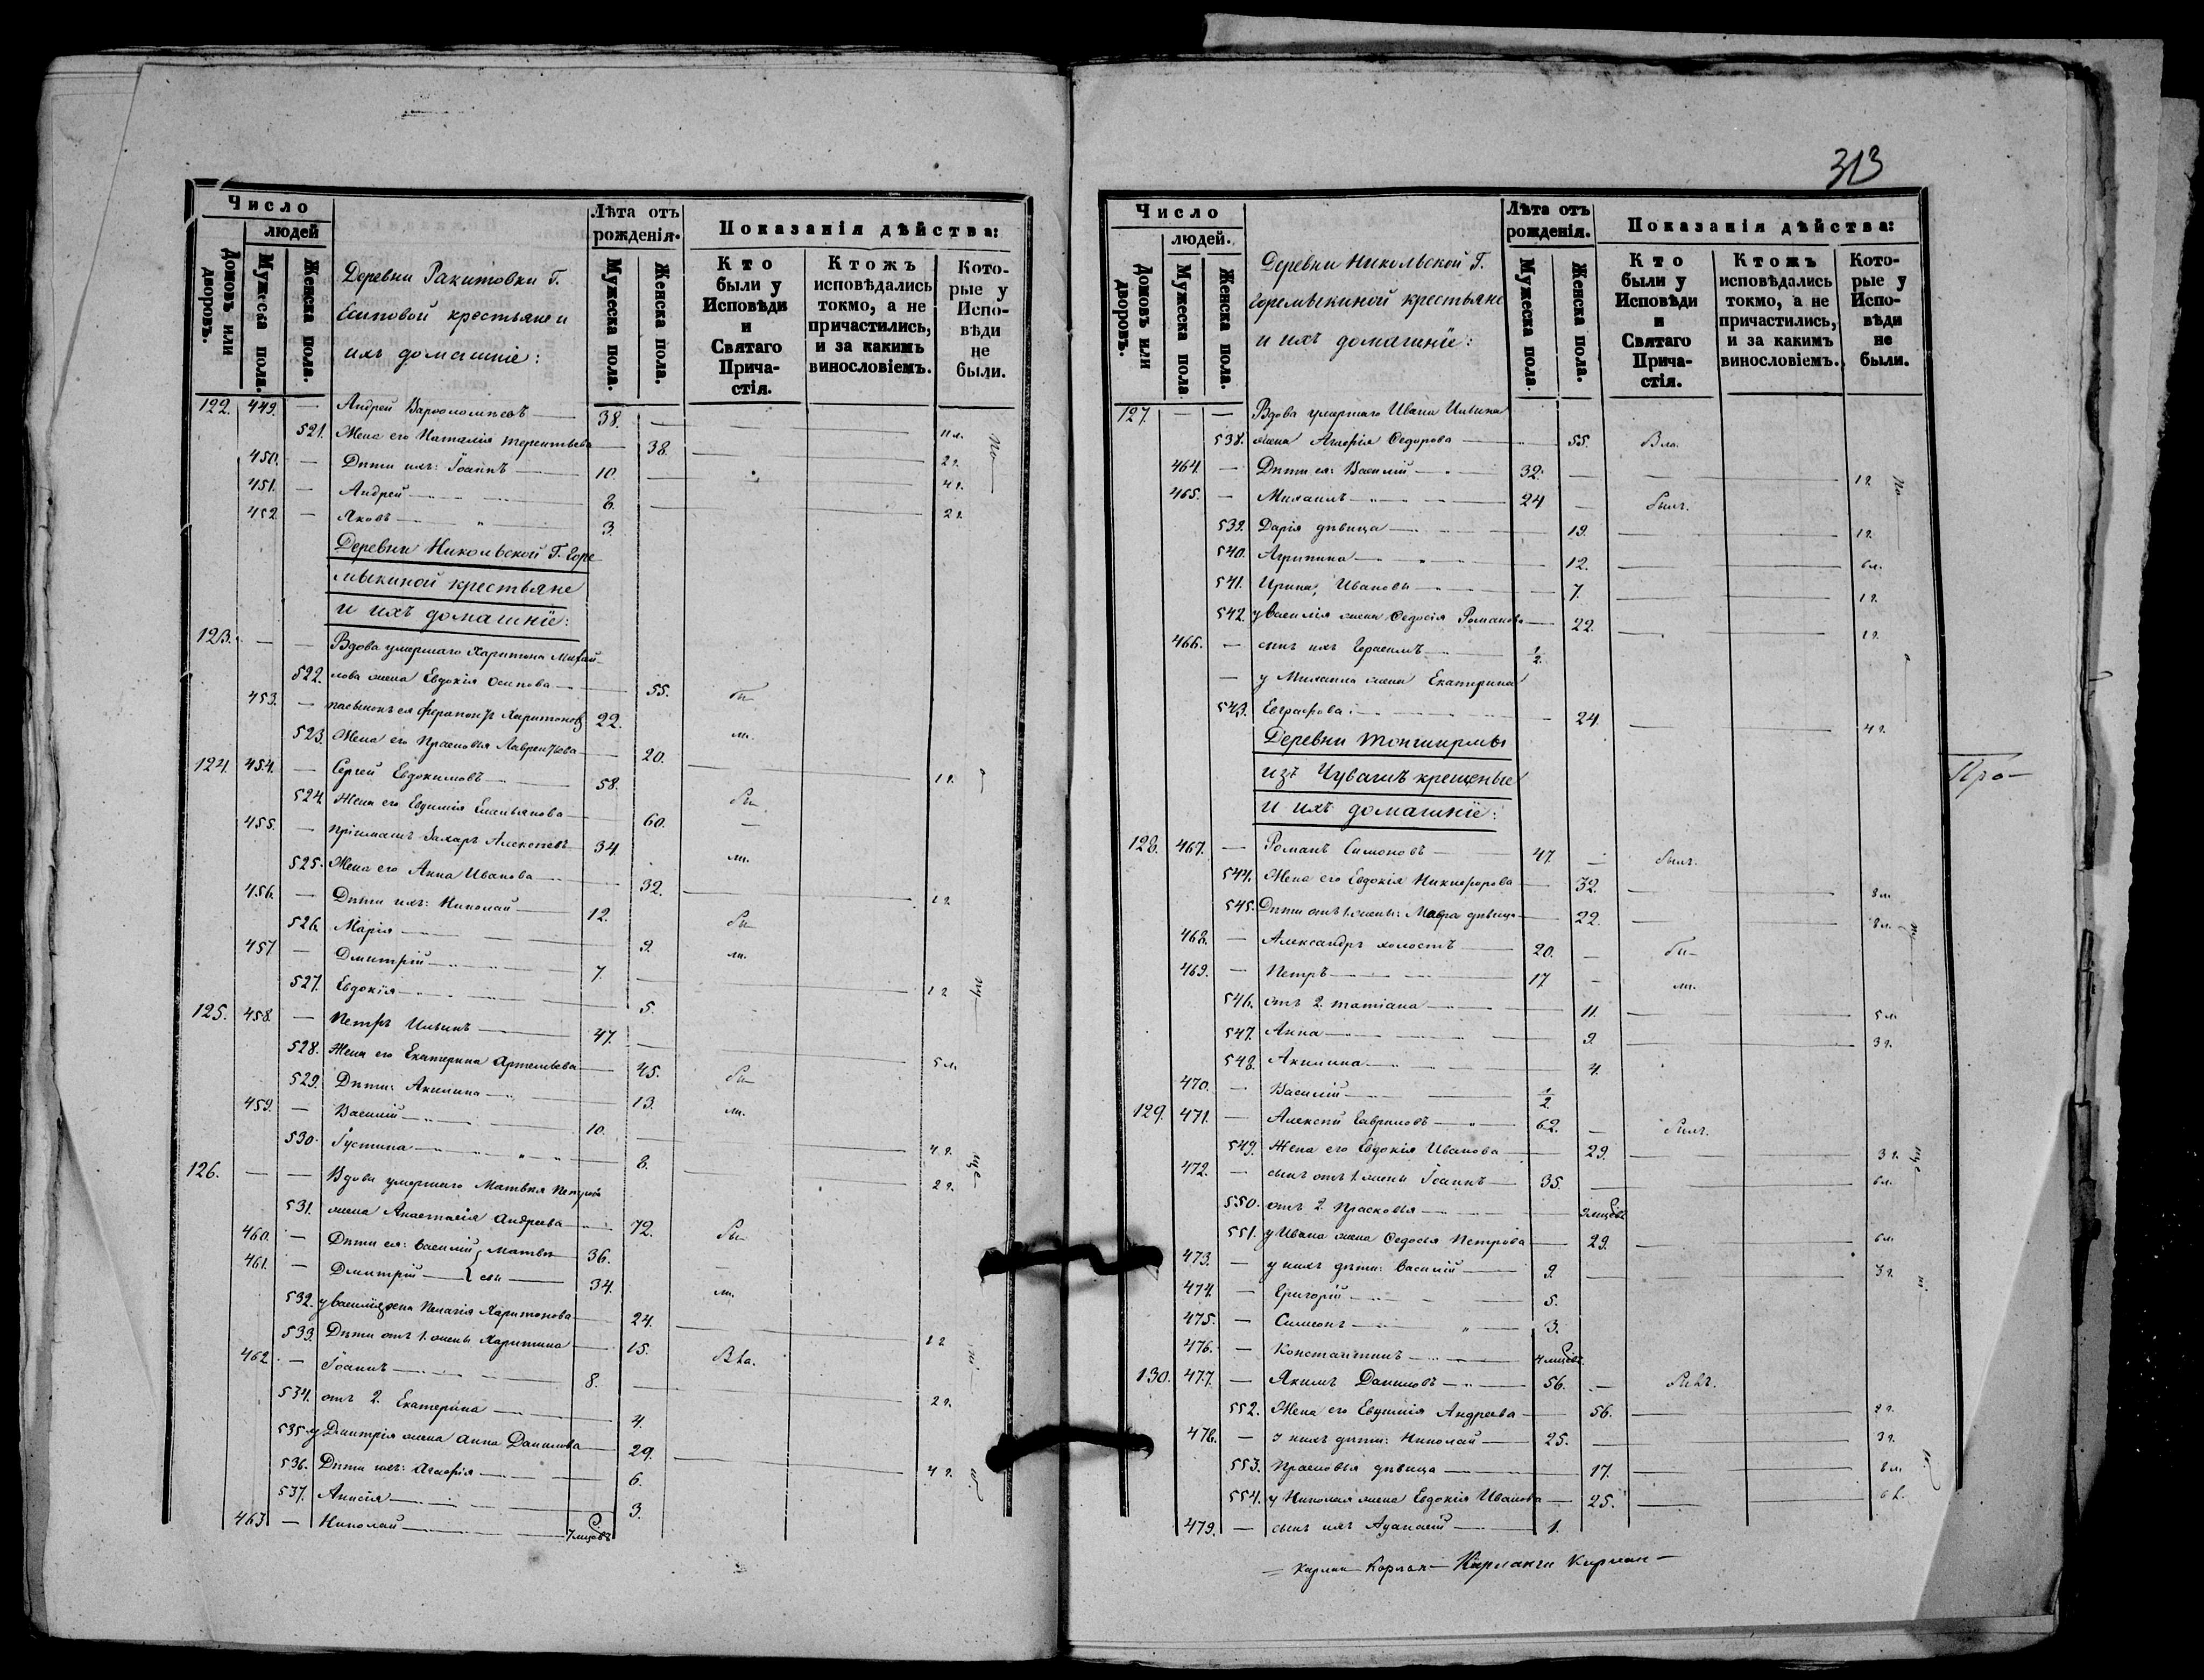 Число
людей
Домовъ или дворовъ.
Мужеска пола.
Женска пола.
Деревни Ракитовки Г.
Есиповой крестьяне и
ихъ домашнiе:
Лѣта отъ рожденiя.
Мужеска пола.
Женска пола.
Показанiя дѣйства:
Кто были у Исповѣди и Святаго Прича-стiя.
Ктожъ исповѣдались токмо, а не причастились, и за какимъ винословiемъ.
Кото-рые у Испо-вѣди не были.
122. 449. — Андрей Варѳоломѣевъ — 38.
521. Жена его Наталiя Терентьева — 38. 11 л.
450. — Дѣти ихъ: Iоаннъ — 10. 2 г.
451. — Андрей — 8. 4 г.
452 — Яковъ — 3. 2 г.
Деревни Никольской Г. Горе
мыкиной крестьяне
и ихъ домашнiе:
123. — — Вдова умершаго Харитона Михай-
522. лова жена Евдокiя Осипова — 55. бы
453. — пасынокъ ея Ферапонтъ Харитоновъ 22. ли.
523. Жена его Прасковья Лаврентьева — 20. 1 г.
124. 454. — Сергей Евдокимовъ — 58. бы
524. Жена его Евдимiя Емельянова — 60. —
455. — прiимышъ Захаръ Алексѣевъ — 34. ли.
525. Жена его Анна Иванова — 32. 1 г.
456. — Дѣти ихъ: Николай — 12. бы
526. Марiя — 9. ли.
457 — Дмитрiй — 7.
527. Евдокiя — 5. 1 г
125. 458. — Петръ Ильинъ — 47.
528. Жена его Екатерина Артемьева — 45. бы 5 л.
529. Дѣти: Акилина — 13. ли.
459. — Василiй — 10.
530. Iустина — 8. 4 г.
126. — — Вдова умершаго Матвѣя Петрова 2 г.
531. жена Анастасiя Андреева — 72. бы
460. — Дѣти ея: Василiй } Матвѣ 36. —
461. — Дмитрiй } евы — 34. ли.
532. у Василiя жена Пелагiя Харитонова — 24. 1 г
533. Дѣти отъ 1. жены Харитина — 15. была.
462. — Iоаннъ — 8.
534. отъ 2. Екатерина — 4. 2 г.
535. у Дмитрiя жена Анна Данилова — 29.
536. Дѣти ихъ: Агафiя — 6. 4 г.
537. Анисiя — 3.
463 — Николай — 7 мцовъ
313
Число
людей.
Домовъ или дворовъ.
Мужеска пола
Женска пола.
Деревни Никольской Г.
Горемыкиной крестьяне
и ихъ домашнiе:
Лѣта отъ рожденiя.
Мужеска пола.
Женска пола.
Показанiя дѣйства:
Кто были у Исповѣди и Святаго Прича-стiя.
Ктожъ исповѣдались токмо, а не причастились, и за какимъ винословiемъ.
Кото-рые у Испо-вѣди не были.
127. — — Вдова умершаго Ивана Ильина
538. жена Агафiя Федорова — 55. была.
464. — Дѣти ея: Василiй — 32. — 1 г.
465. — Михаилъ — 24 — былъ.
539. Дарiя дѣвица — 19. 1 г.
540. Агрипина — 12. 6 л.
541. Ирина, Ивановы — 7. 1 г.
542. у Василiя жена Федосiя Романова — 22. 1 г.
466. — сынъ ихъ Герасимъ — 1/2.
— у Михаила жена Екатерина
543. Евграфова — 24. 4 г.
Деревни Тонширмы
изъ Чувашъ крещеные
и ихъ домашнiе:
Про—
128. 467. — Романъ Симоновъ — 47. — былъ.
544. Жена его Евдокiя Никифорова — 32. 8 л.
545. Дѣти отъ 1. жены: Мавра дѣвица — 22. 8 л.
468. — Александръ холостъ — 20. — бы—
469. — Петръ — 17 — ли.
546. отъ 2. Татiана — 11. 5 л.
547. Анна — 9. 3 г.
548. Акилина — 4.
470. — Василiй — 1/2
129. 471. — Алексѣй Гавриловъ — 62. — былъ.
549. Жена его Евдокiя Иванова — 29. 3 г.
472. — сынъ отъ 1. жены Iоаннъ — 35. 6 л.
550. отъ 2. Прасковья —
551. у Ивана жена Федосья Петрова — 29. 6 л.
473. — у нихъ дѣти: Василiй — 9. 3 г.
474. — Григорiй — 5.
475. — Симеонъ — 3.
476. — Константинъ — 4 мцовъ.
130. 477. — Якимъ Даниловъ — 56. — былъ.
552. Жена его Евдимiя Андреева — 56. 2 г.
478. — у нихъ дѣти: Николай — 25. 3 г.
553. Прасковья дѣвица — 17. 8 л.
554. у Николая жена Евдокiя Иванова — 25.
479. — сынъ ихъ — 1.